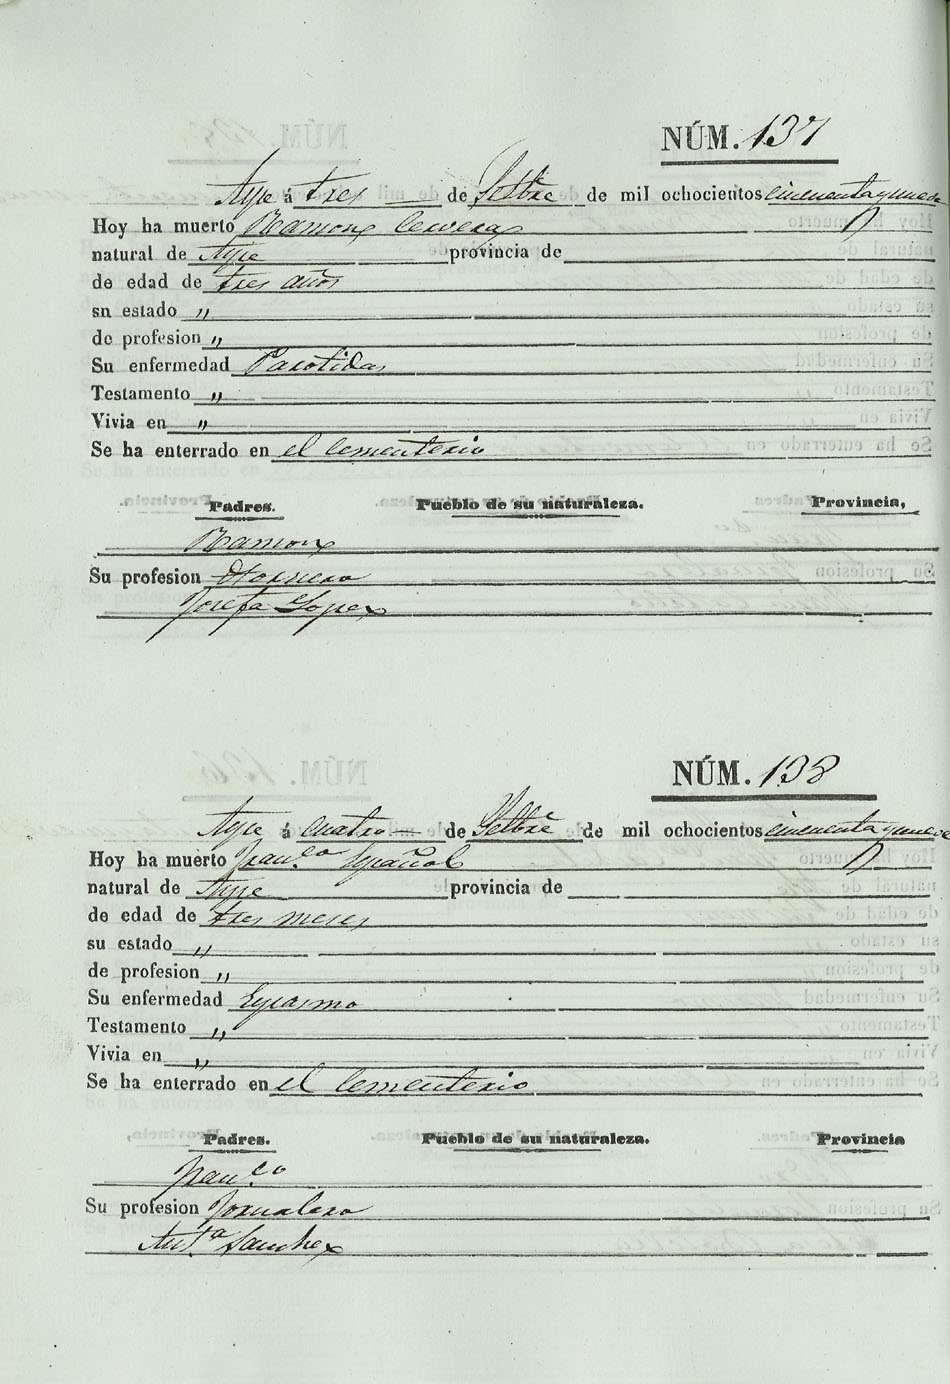 NÚM. 137
Aspe á tres de Setbre de mil ochocientos cincuenta y nueve
Hoy ha muerto Ramon Cervera
natural de Aspe provincia de
de edad de tres años
su estado "
de profesion "
Su enfermedad Parotidas
Testamento "
Vivia en "
Se ha enterrado en el Cementerio
Padres. Pueblo de su naturaleza. Provincia,
Ramon
Su profesion Hornero
Josefa Lopez
NÚM. 138
Aspe á cuatro de Setbre de mil ochocientos cincuenta y nueve
Hoy ha muerto Franco Español
natural de Aspe provincia de
de edad de tres meses
su estado "
de profesion "
Su enfermedad Espasmo
Testamento "
Vivia en "
Se ha enterrado en el Cementerio
Padres. Pueblo de su naturaleza. Provincia
Franco
Su profesion Jornalero
Anta Sanchez